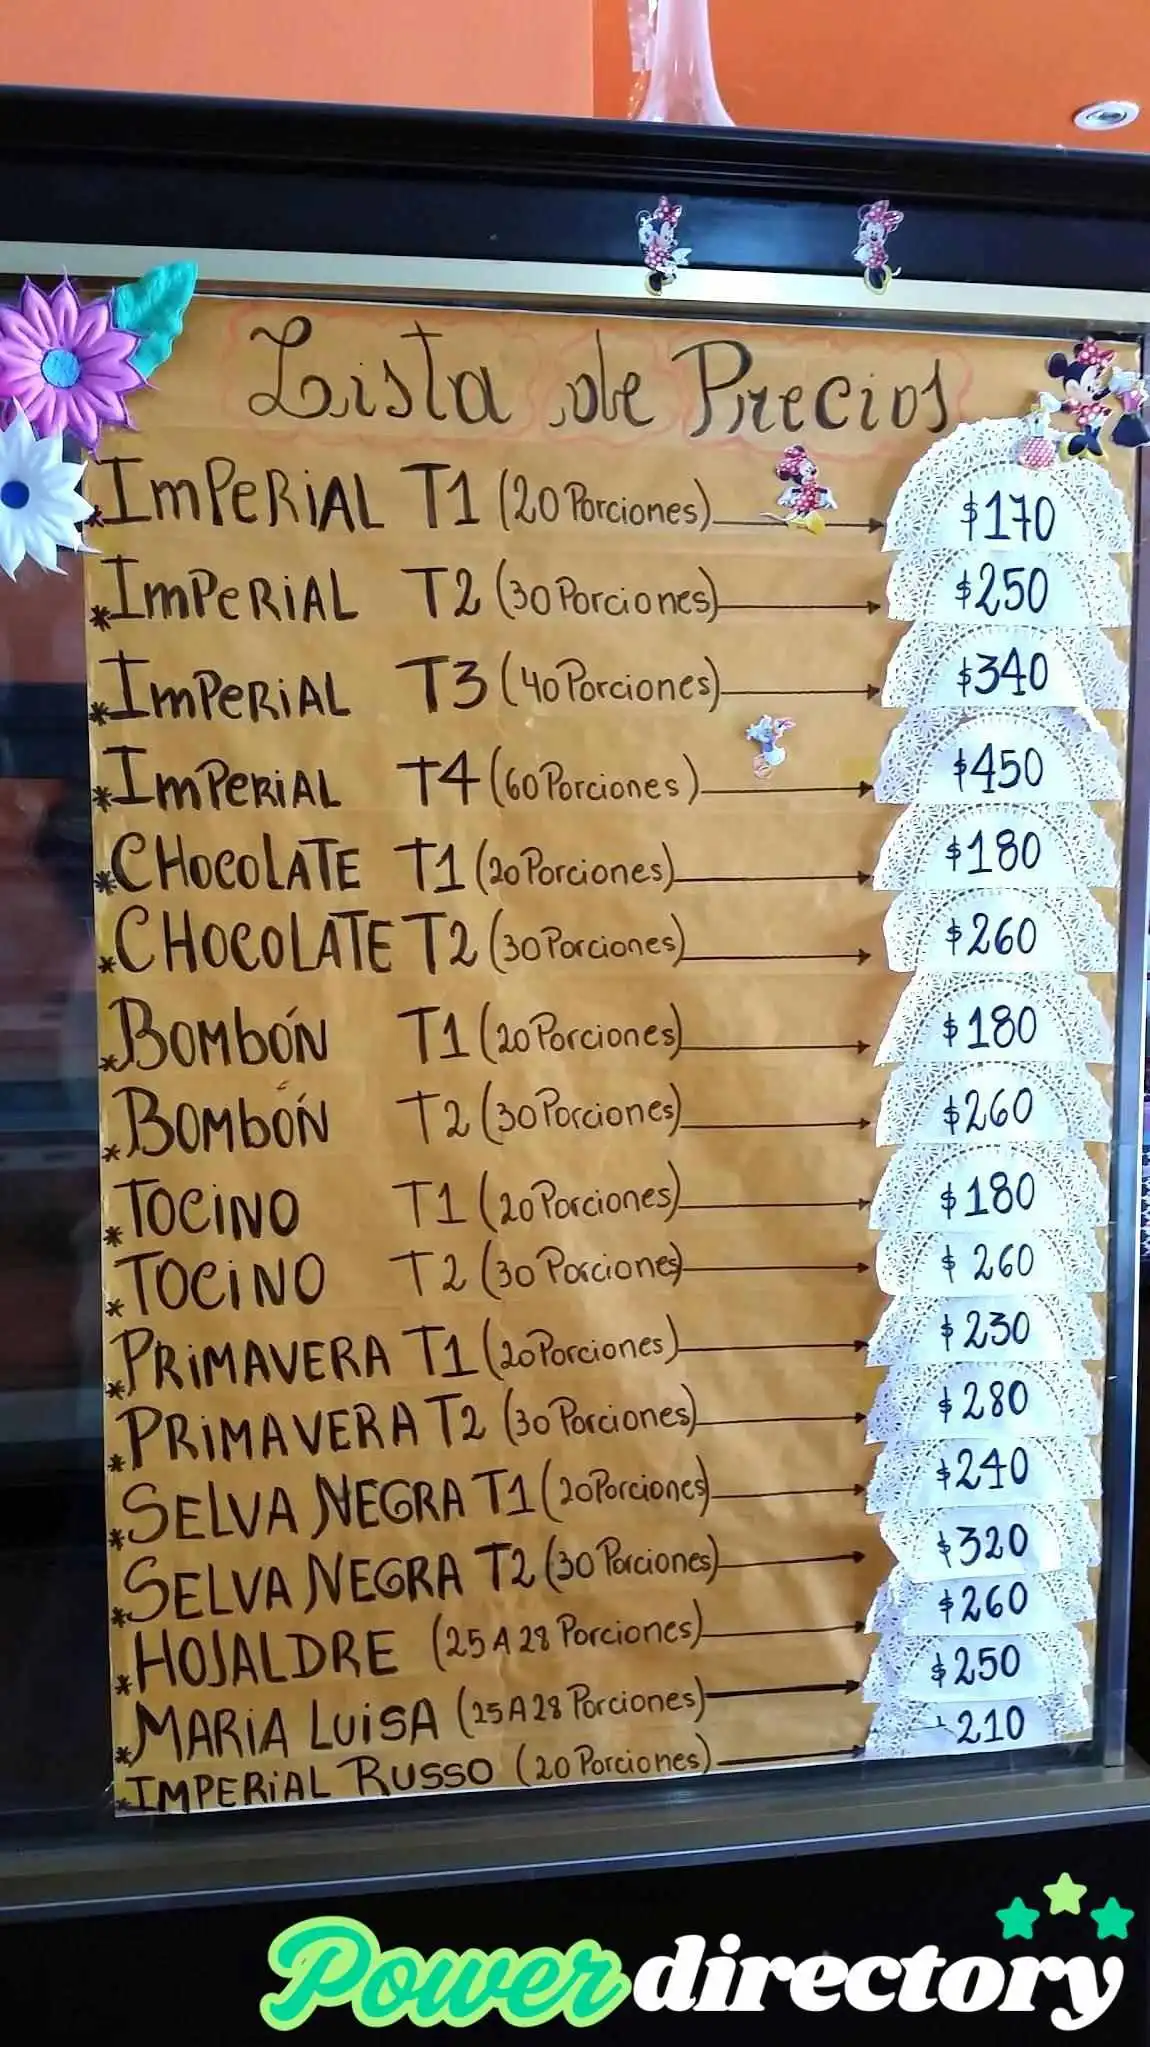 Lista de Precios
*Imperial T1 (20 Porciones) $170
*Imperial T2 (30 Porciones) $250
*Imperial T3 (40 Porciones) $340
*Imperial T4 (60 Porciones) $450
*Chocolate T1 (20 Porciones) $180
*Chocolate T2 (30 Porciones) $260
*Bombón T1 (20 Porciones) $180
*Bombón T2 (30 Porciones) $260
*Tocino T1 (20 Porciones) $180
*Tocino T2 (30 Porciones) $260
*Primavera T1 (20 Porciones) $230
*Primavera T2 (30 Porciones) $280
*Selva Negra T1 (20 Porciones) $240
*Selva Negra T2 (30 Porciones) $320
*Hojaldre (25 A 28 Porciones) $260
*Maria Luisa (25 A 28 Porciones) $250
*Imperial Russo (20 Porciones) 210
Powerdirectory